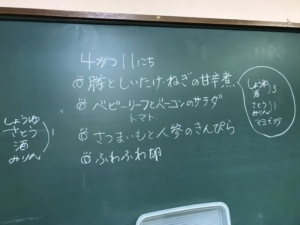 4がつ11にち
豚としいたけ・ねぎの甘辛煮
ベビーリーフとベーコンのサラダ
トマト
さつまいもと人参のきんぴら
ふわふわ卵
しょうゆ
さとう
酒
みりん
1
しょうゆ
酒
3
さとう
みりん
1